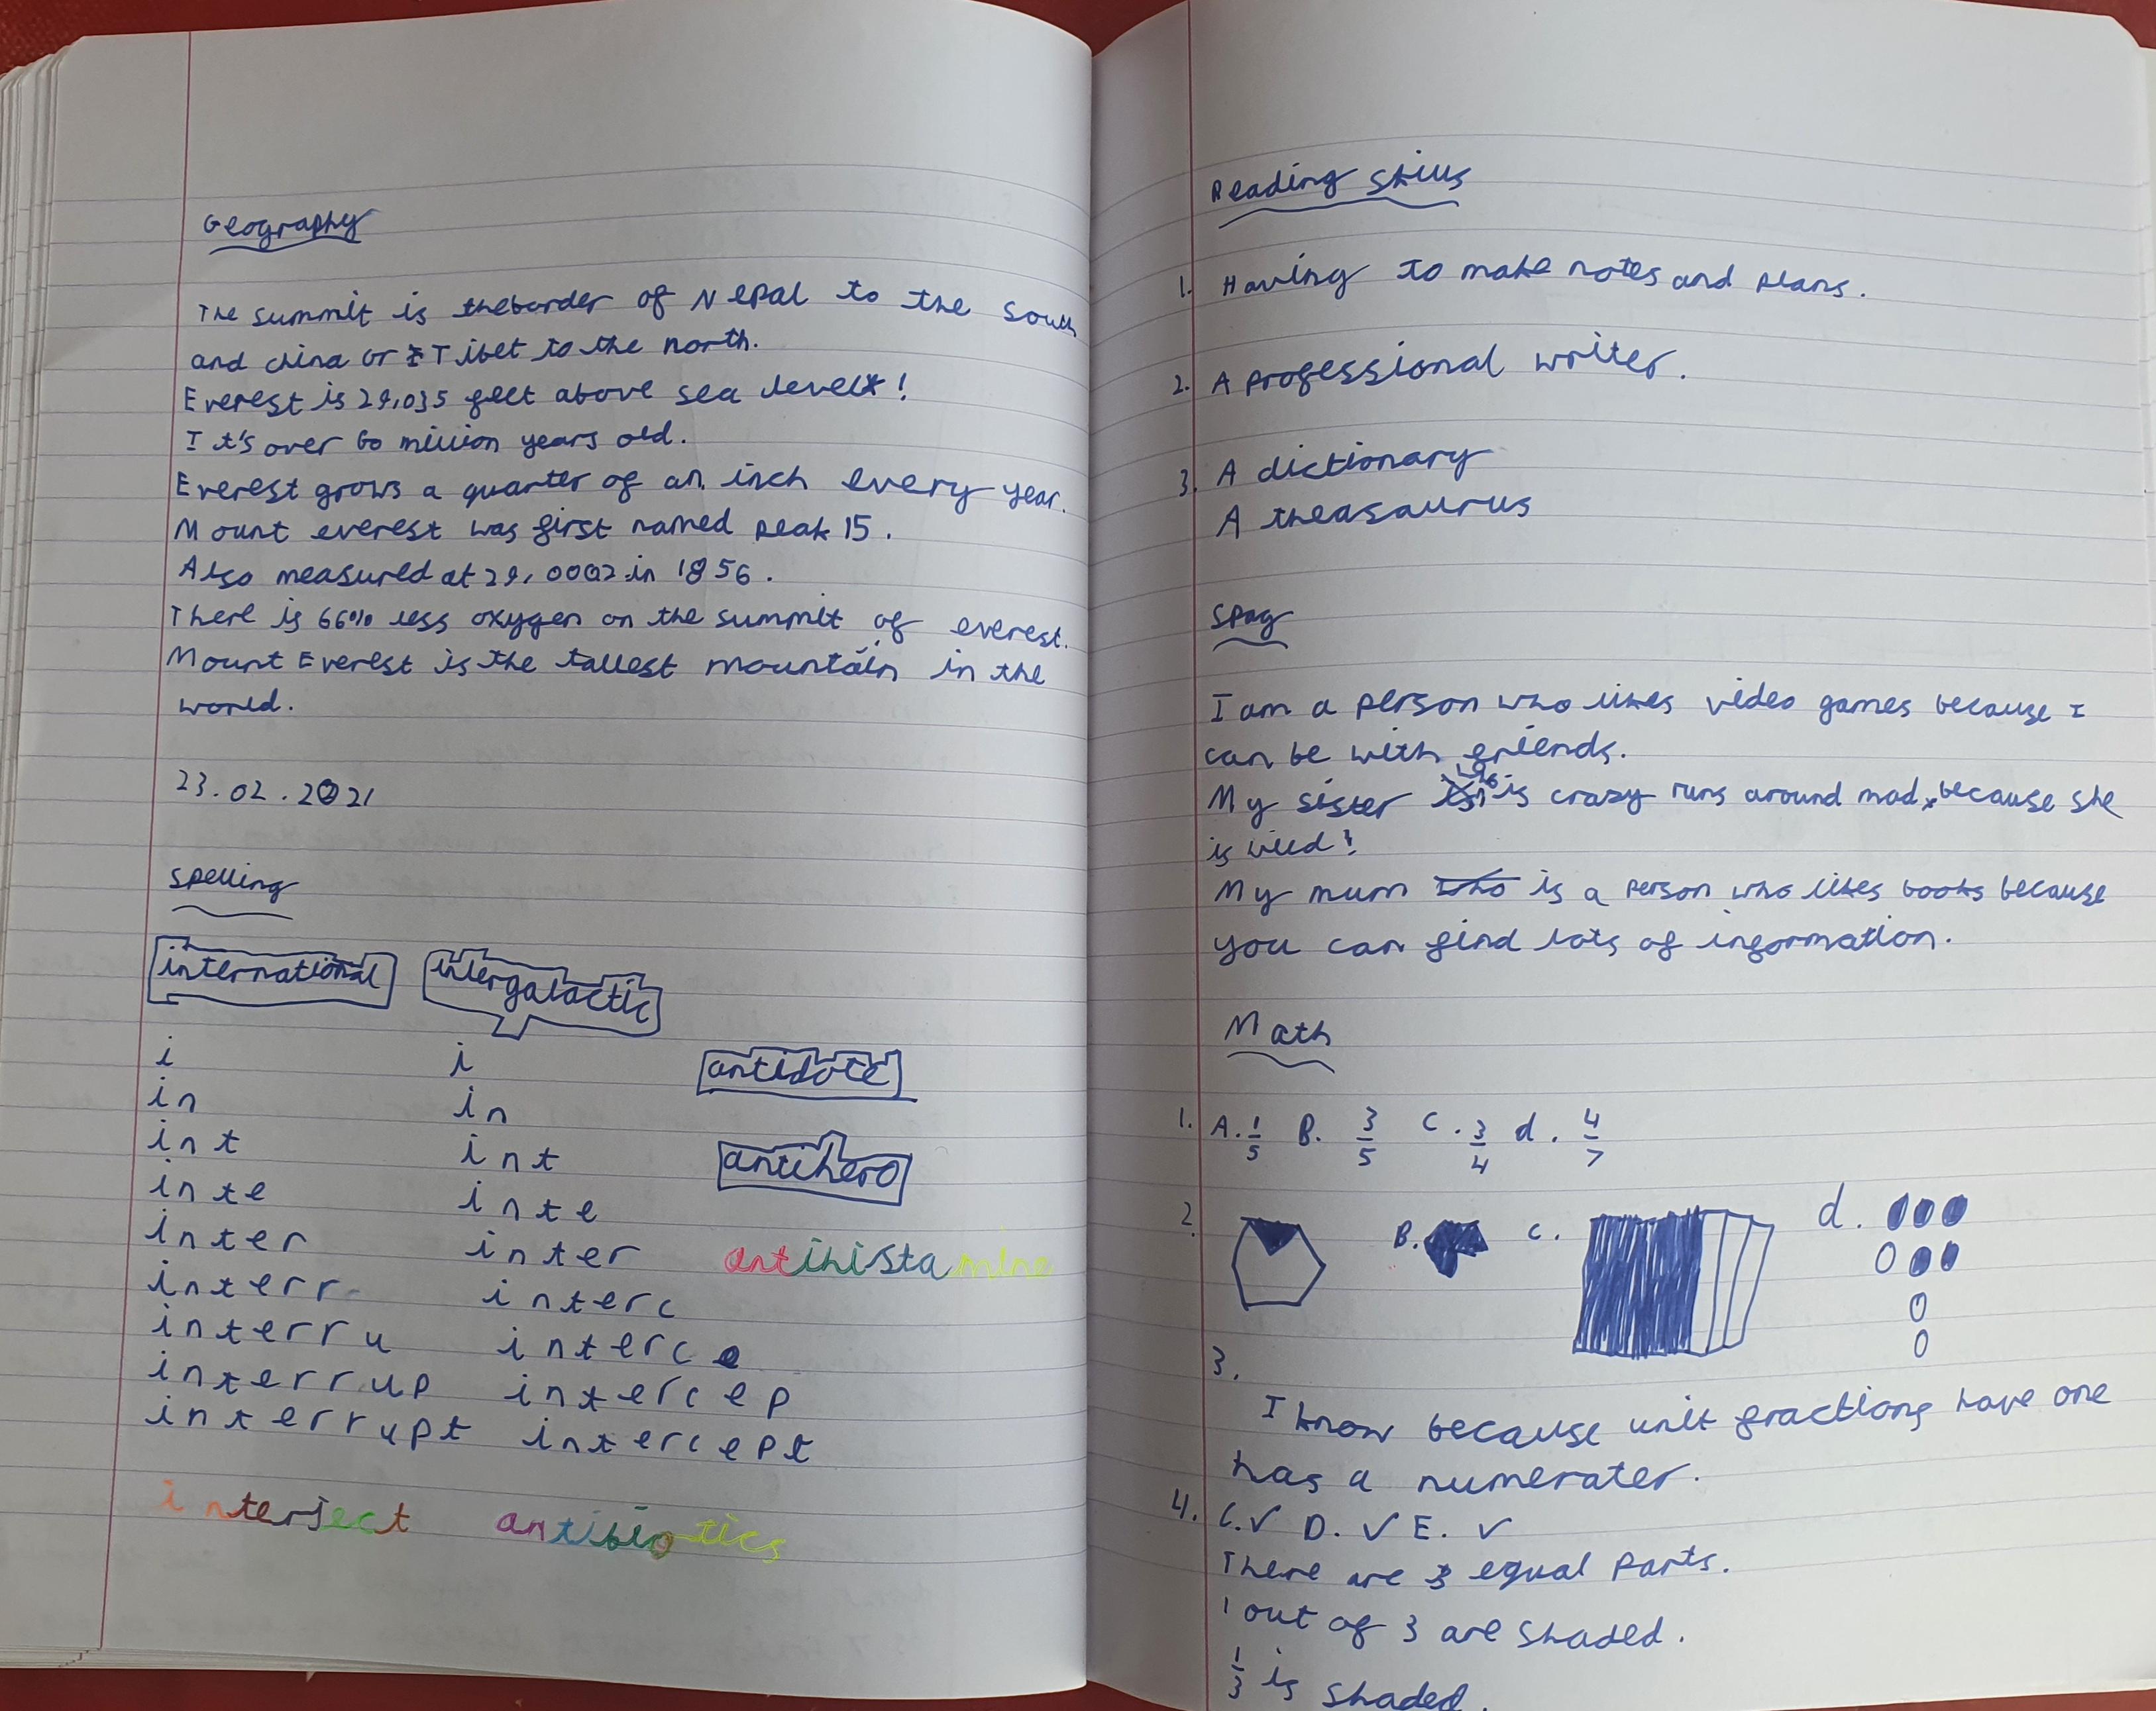 Geography
The summit is the border of Nepal to the south
and china or Tibet to the north.
Everest is 29,035 feet above sea level!
It's over 60 million years old.
Everest grows a quarter of an inch every year.
Mount everest was first named peak 15.
Also measured at 29,0002 in 1856.
There is 66% less oxygen on the summit of everest.
Mount Everest is the tallest mountain in the
world.
23.02.2021
Spelling
international intergalactic
i i
antidote
in in
int int
antihero
inte inte
inter inter
antihistamine
interr interc
interru interce
interrup intercep
interrupt intercept
interject antibiotics
Reading skills
1. Having to make notes and plans.
2. A professional writer.
3. A dictionary
A theasaurus
Spag
I am a person who likes video games because I
can be with friends.
My sister is crazy runs around mad, because she
is wied!
My mum who is a person who likes books because
you can find lots of information.
Math
1. A. 1/5 B. 3/5 C. 3/4 d. 4/7
2. B. C. d.
3.
I know because unit fractions have one
has a numerater.
4. C. ✓ D. ✓ E. ✓
There are 3 equal parts.
1 out of 3 are shaded.
1/3 is shaded.